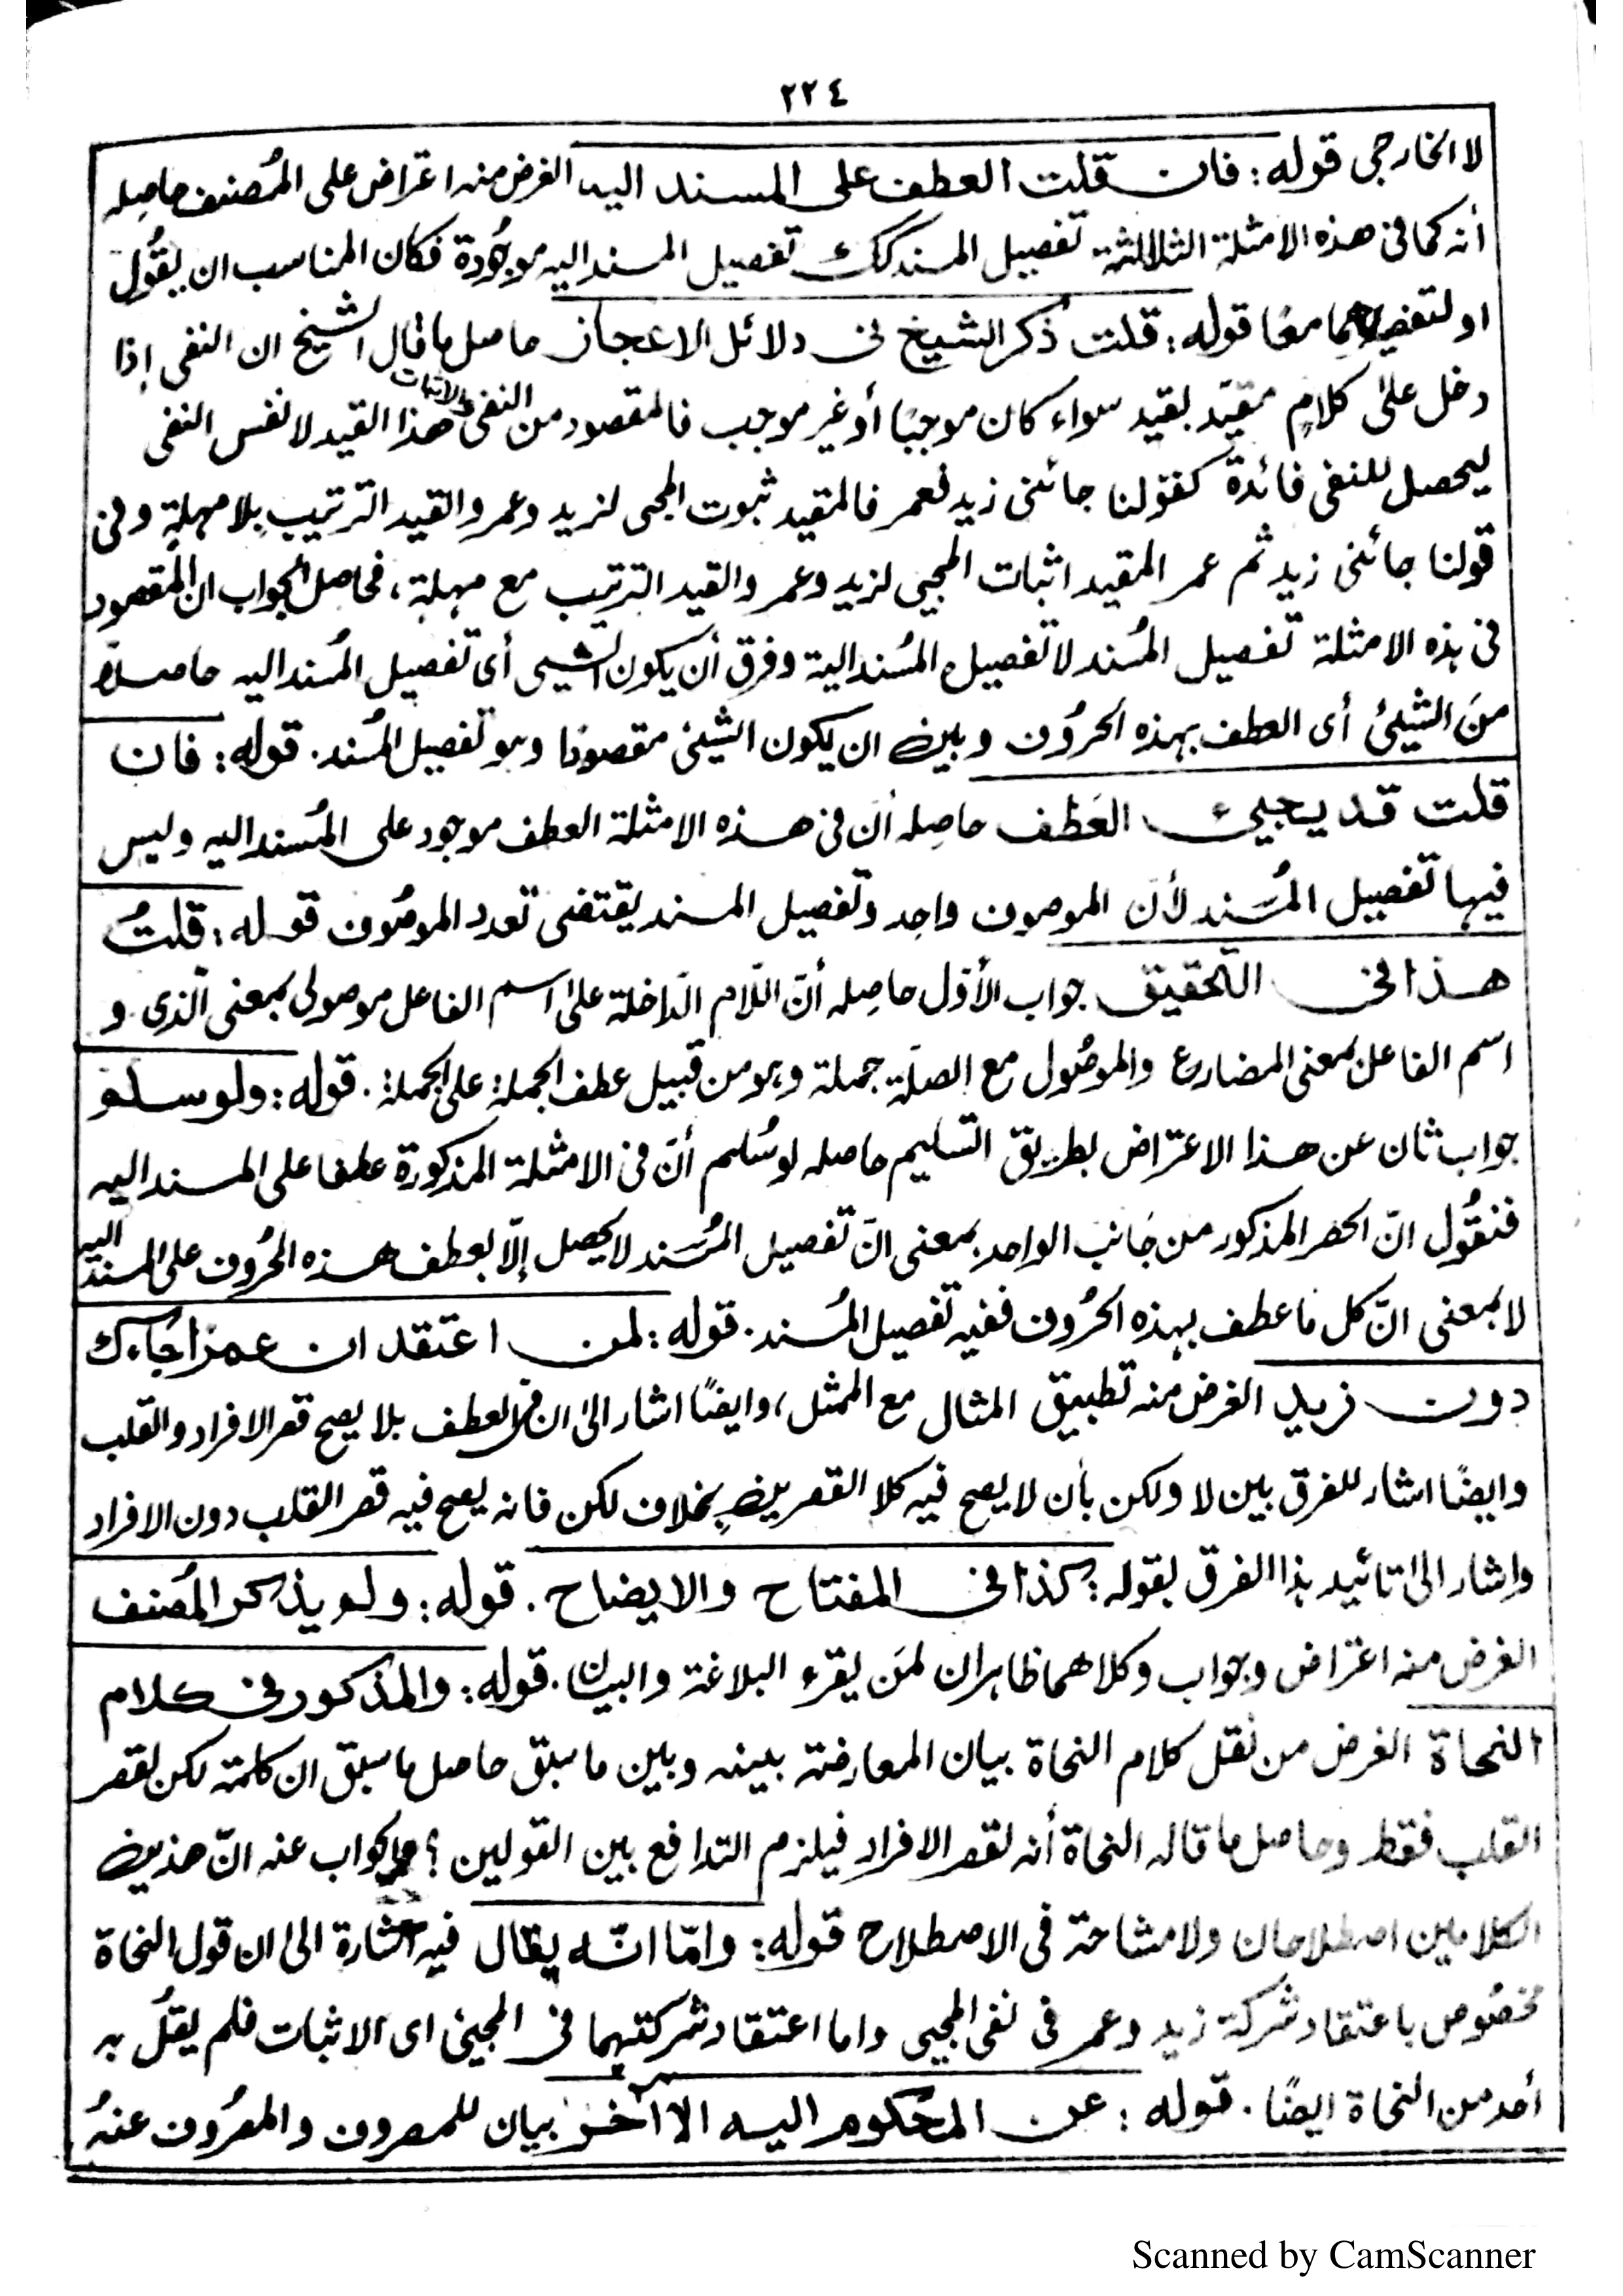 ٢٢٤
لا الخارجي قوله: فان قلت العطف على المسند اليه الغرض منه اعتراض على المُصنف حاصِله
أنه كما في هذه الامثلة الثلاثة تفصيل المسند كك تفصيل المسند اليه موجُودة فكان المناسب ان يقُول
او لتفصيلهما معًا قوله: قلت ذكر الشيخ في دلائل الاعجاز حاصل ما قال الشيخ ان النفي إذا
دخل على كلامٍ مقيّد بقيد سواء كان موجبًا أو غير موجب فالمقصود من النفي والاثبات هذا القيد لا نفس النفي
ليحصل للنفي فائدة كقولنا جائني زيد فعمر فالمقيد ثبوت المجي لزيد وعمر والقيد الترتيب بِلا مهلةٍ وفي
قولنا جائني زيد ثم عمر المقيد اثبات المجيي لزيد وعمر والقيد الترتيب مع مهلة، فحاصل الجواب ان المقصود
في هذه الامثلة تفصيل المُسند لا تفصيل المسُند الية وفرق أن يكون الشيى أى تفصيل المُسند اليه حاصلاً
منَ الشيئ أى العطف بهذه الحرُوف وبين ان يكون الشيئ مقصودًا وهو تفصيل المُسند. قوله: فان
قلت قد يجيئ العَطف حاصِله أن في هذه الامثلة العطف موجود على المسُند اليه وليس
فيها تفصيل المُسَند لأن الموصوف واحد وتفصيل المسند يقتضى تعدد الموصُوف قوله: قلتُ
هذا في التّحقيق جواب الأوّل حاصِله أنّ اللّام الدّاخلة على اسم الفاعل موصولى بمعنى الّذى و
اسم الفاعل بمعنى المضارع والموصُول مع الصلة جملة وهو من قبيل عطف الجملة على الجملة. قوله: ولو سلم
جواب ثان عن هذا الاعتراض بطريق التسليم حاصله لو سُلم أنّ في الامثلة المذكورة عطفا على المسند اليه
فنقُول انّ الحصر المذكور من جَانب الواحد بمعنى انّ تفصيل المُسَند لا يحصل إلّا بعطف هذه الحرُوف على المسند اليه
لا بمعنى انّ كل ما عطف بهذه الحرُوف ففيه تفصيل المُسند. قوله: لمن اعتقد ان عمرًا جَاءك
دون زيدٍ الغرض منه تطبيق المثال مع الممثل، وايضًا اشار الى ان في العطف بلا يصح قصر الافراد والقلب
وايضًا اشار للفرق بين لا ولكن بأن لا يصح فيه كلا القصرين بخلاف لكن فانه يصح فيه قصر القلب دون الافراد
واشار الى تائيد هذا الفرق بقوله: كذا في المفتاح والايضاح. قوله: ولم يذكر المُصَنف
الغرض منه اعتراض وجواب وكلاهما ظاهران لمَن يقرء البلاغة والبيان. قوله: والمذكور في كلام
النحاة الغرض من نقل كلام النحاة بيان المعارضة بينه وبين ما سبق حاصل ما سبق ان كلمة لكن لقصر
القلب فقط وحاصل ما قاله النحاة أنه لقصر الافراد فيلزم التدافع بين القولين؟ والجواب عنه انّ هذين
الكلامين اصطلاحان ولا مشاحة في الاصطلاح قوله: وامّا انّه يقال فيه اشارة الى ان قول النحاة
مخصُوص باعتقاد شركة زيد وعمر في نفى المجيى واما اعتقاد شركتهما في المجيئ اى الاثبات فلم يقُل به
أحد من النحاة ايضًا. قوله: عن المحكوم اليه الاآخر بيان للمصروف والمصرُوف عنهُ
Scanned by CamScanner